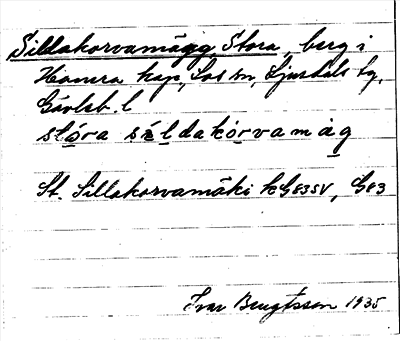 Sillakorvamägg, Stora, berg i
Hamra kap., Los sn, Ljusdals tg,
Gävleb. l
stóra sĕldakorvamäg
St. Sillakorvamäki kG83SV, G83
Ivar Bengtsson 1935